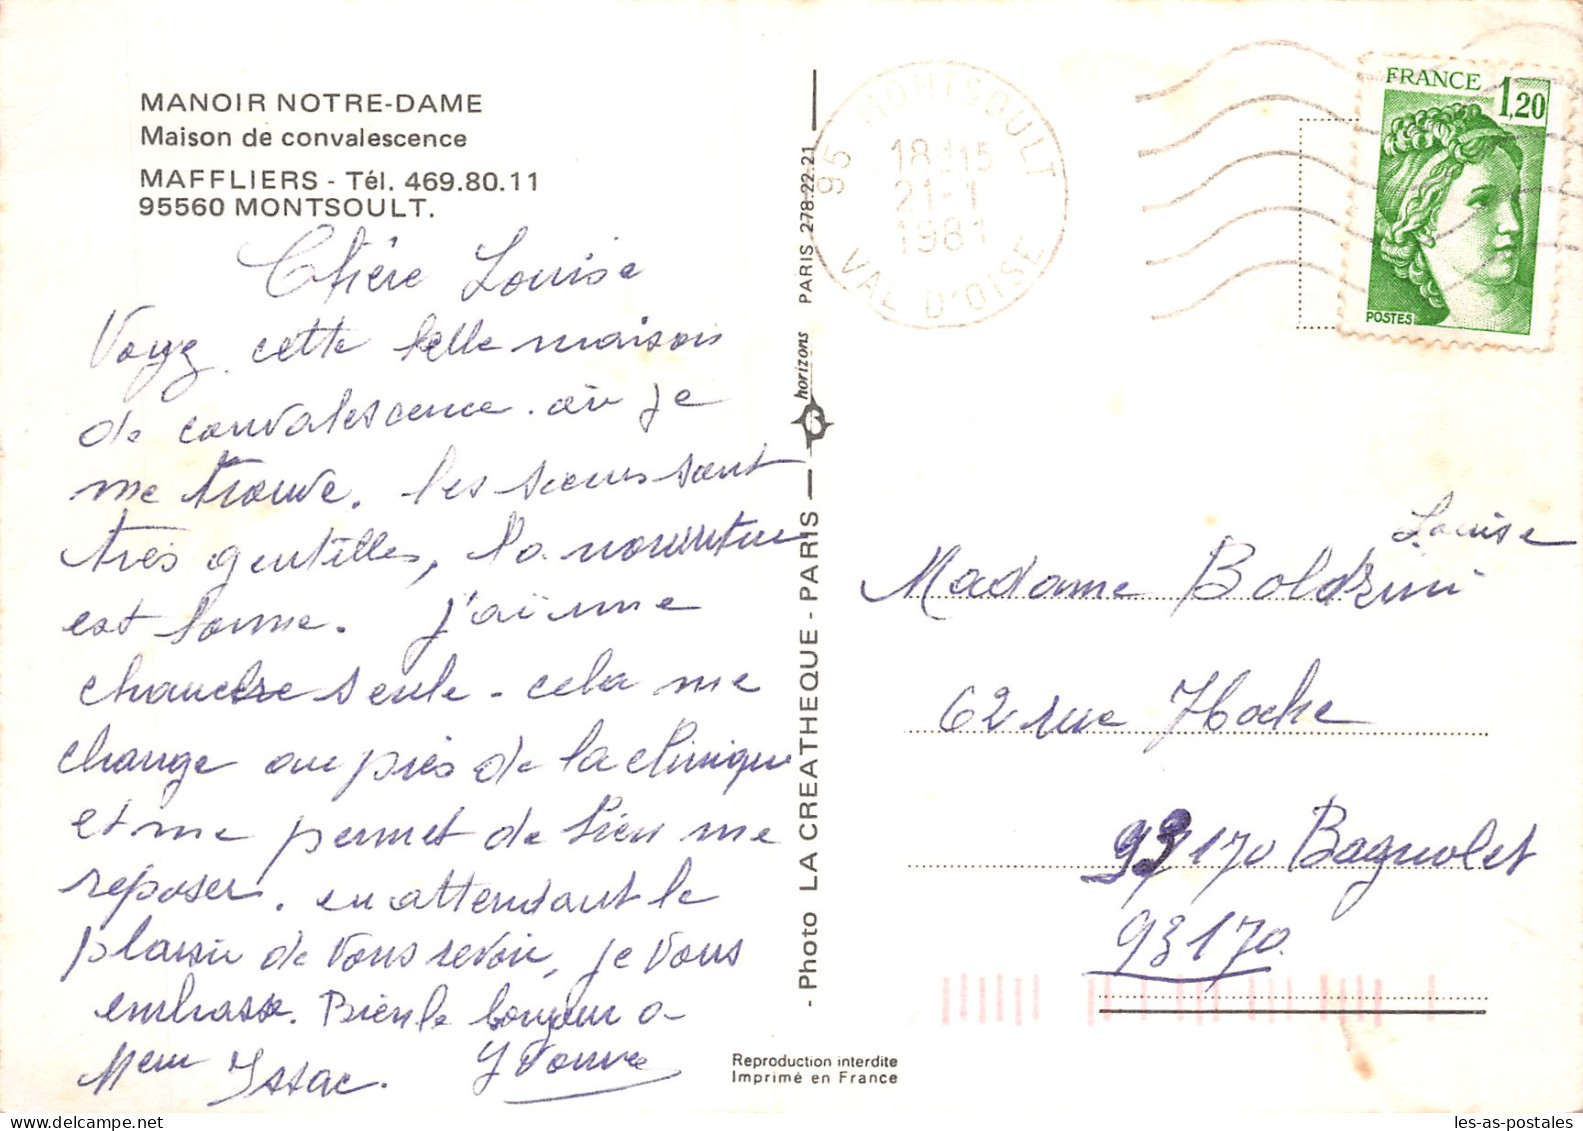 MANOIR NOTRE-DAME
Maison de convalescence
MAFFLIERS - Tél. 469.80.11
95560 MONTSOULT.
Chère Louise
Voyez cette belle maison
de convalescence où je
me trouve. les sœurs sont
très gentilles, la nourriture
est bonne. j'ai une
chambre seule - cela me
change au près de la clinique
et me permet de bien me
reposer. en attendant le
plaisir de vous revoir, je vous
embrasse. Bien le bonjour a
Mem Issac. Yvonne
- Photo LA CREATHEQUE - PARIS - horizons PARIS 278.22.21
Reproduction interdite
Imprimé en France
95 MONTSOULT
18H15
21-1
1981
VAL D'OISE
FRANCE 1,20
POSTES
Louise
Madame Boldrini
62 rue Hoche
93170 Bagnolet
93170.
les-as-postales